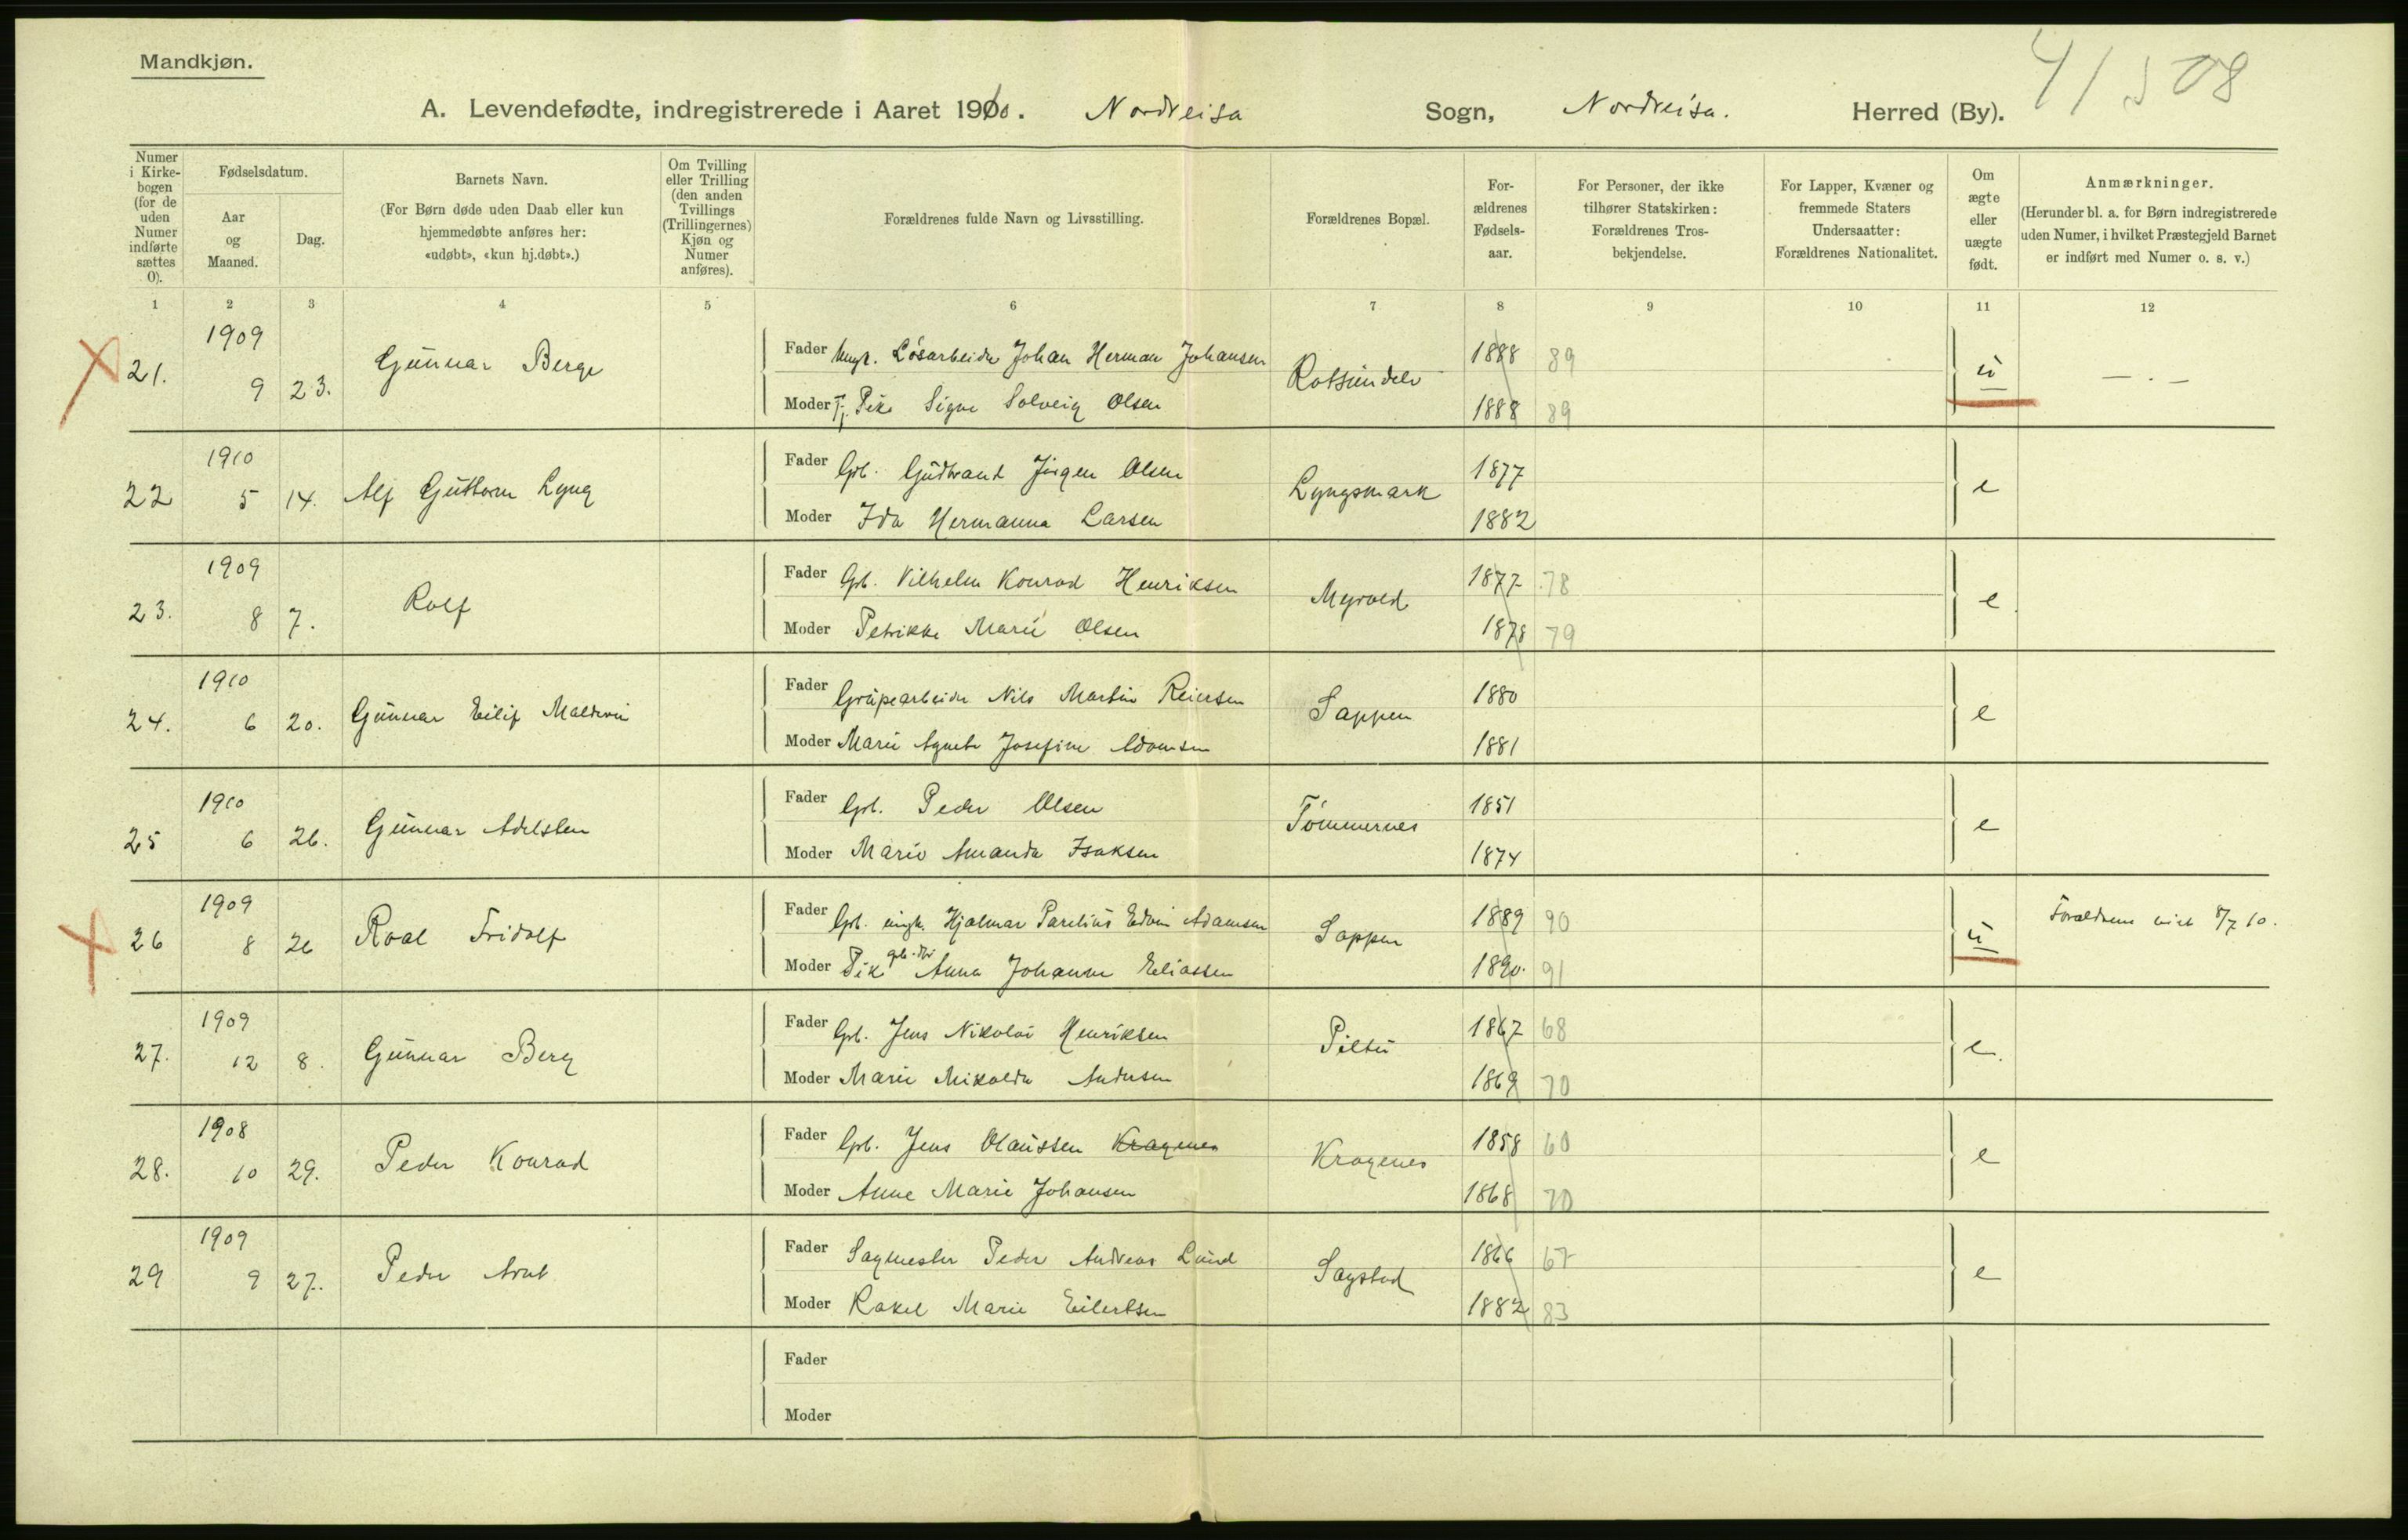 Mandkjøn.
41 508
A. Levendefødte, indregistrerede i Aaret 1910. Nordreisa Sogn, Nordreisa. Herred (By).
Numer i Kirkebogen (for de uden Numer indførte sættes 0).
Fødselsdatum.
Aar og Maaned.
Dag.
Barnets Navn.
(For Børn døde uden Daab eller kun hjemmedøbte anføres her: «udøbt», «kun hj.døbt».)
Om Tvilling eller Trilling (den anden Tvillings (Trillingernes) Kjøn og Numer anføres).
Forældrenes fulde Navn og Livsstilling.
Forældrenes Bopæl.
Forældrenes Fødselsaar.
For Personer, der ikke tilhører Statskirken: Forældrenes Trosbekjendelse.
For Lapper, Kvæner og fremmede Staters Undersaatter: Forældrenes Nationalitet.
Om ægte eller uægte født.
Anmærkninger.
(Herunder bl. a. for Børn indregistrerede uden Numer, i hvilket Præstegjeld Barnet er indført med Numer o. s. v.)
1 2 3 4 5 6 7 8 9 10 11 12
21. 1909 9 23. Gunnar Berge
Fader Ungk. Løsarbeider Johan Herman Johansen Rotsundelv 1888 89 u — . —
Moder Tj. Pike Signe Solveig Olsen 1888 89
22 1910 5 14. Alf Guttorm Lyng
Fader Gb. Gudbrand Jørgen Olsen Lyngsmark 1877 e
Moder Ida Hermanna Larsen 1882
23. 1909 8 7. Rolf
Fader Gb. Vilhelm Konrad Henriksen Myrvold 1877 78 e
Moder Petrikke Marie Olsen 1878 79
24. 1910 6 20. Gunnar Eilif
Fader Grubearbeider Nils Martin Reiersen Sappen 1880 e
Moder Marie Agnete Josefine Adamsen 1881
25 1910 6 26. Gunnar Adelsten
Fader Gb. Peder Olsen Tømmernes 1851 e
Moder Marie Amanda Isaksen 1874
26 1909 8 26 Roal Fridolf
Fader Gb. ungk. Hjalmar Parelius Edvin Adamsen Sappen 1889 90 u Forældrene viet 8/7 10.
Moder Pik Anna Johanne Eliassen 1890. 91
27. 1909 12 8. Gunnar Berg
Fader Gb. Jens Nikolai Henriksen 1867 68 e.
Moder Marie Mikalda Andersen 1869 70
28. 1908 10 29. Peder Konrad
Fader Gb. Jens Olaussen Kragenes Kragenes 1858 60 e
Moder Anne Marie Johansen 1868 70
29 1909 9 27. Peder Arnt
Fader Sagmester Peder Andreas Lund Sagstad 1866 67 e
Moder Rakel Marie Eilertsen 1882 83
Fader
Moder